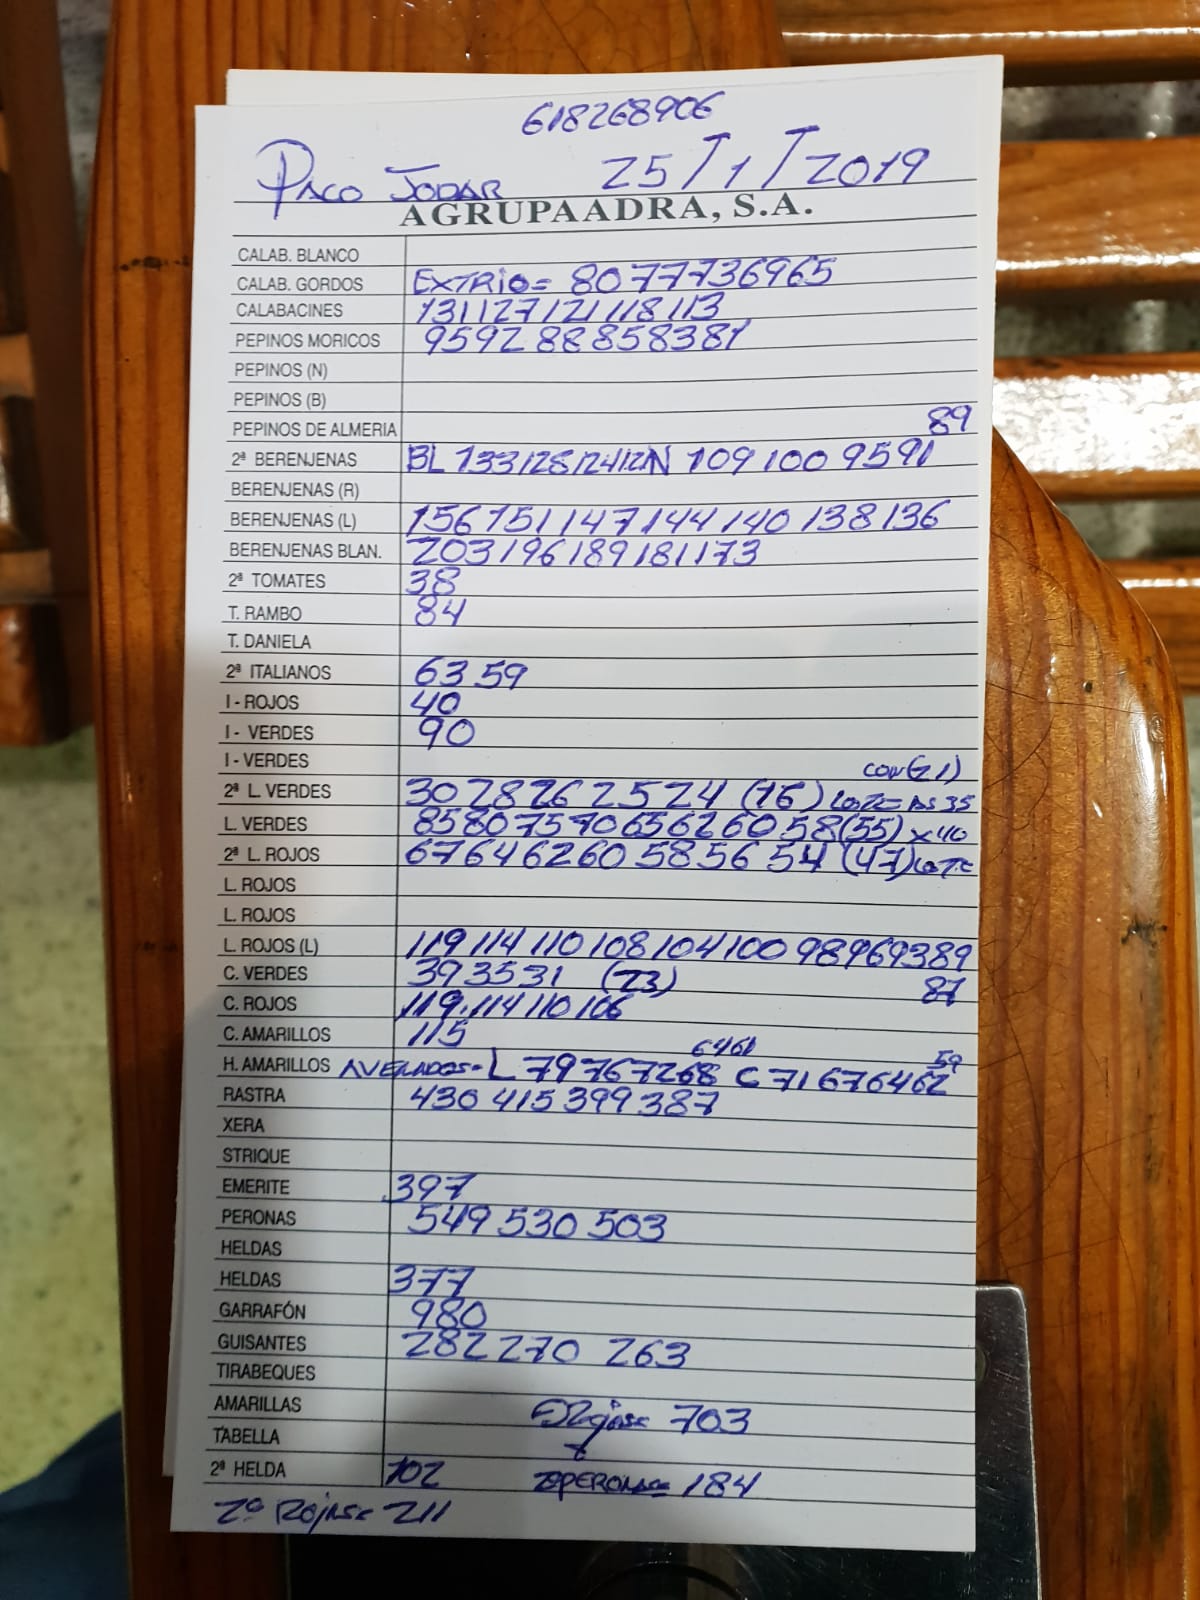 618268906
PACO JODAR 25/1/2019
AGRUPAADRA, S.A.
CALAB. BLANCO
CALAB. GORDOS EXTRIO= 8077736965
CALABACINES 131127121118113
PEPINOS MORICOS 959288858381
PEPINOS (N)
PEPINOS (B)
PEPINOS DE ALMERIA 89
2ª BERENJENAS BL 133/128/124/121 N 109 100 9591
BERENJENAS (R)
BERENJENAS (L) 156 151 147 144 140 138 136
BERENJENAS BLAN. 203196189181173
2ª TOMATES 38
T. RAMBO 84
T. DANIELA
2ª ITALIANOS 63 59
I - ROJOS 40
I - VERDES 90
I - VERDES
2ª L. VERDES 30 28 26 25 24 (16) LOTE AS 35
L. VERDES 8580757065626058(55) x40
2ª L. ROJOS 67646260585654 (47) LOTE
L. ROJOS
L. ROJOS
L. ROJOS (L) 119 114 110 108 104 100 98969389
C. VERDES 393531 (23) 87
C. ROJOS 119.114 110 106
C. AMARILLOS 115
6461 59
H. AMARILLOS AVERADOS= L 79767268 C 71676462
RASTRA 430 415 399 387
XERA
STRIQUE
EMERITE 397
PERONAS 549 530 503
HELDAS
HELDAS 377
GARRAFÓN 980
GUISANTES 282 270 263
TIRABEQUES
AMARILLAS 703
TABELLA
2ª HELDA 102 184
2ª ROJAS= 211